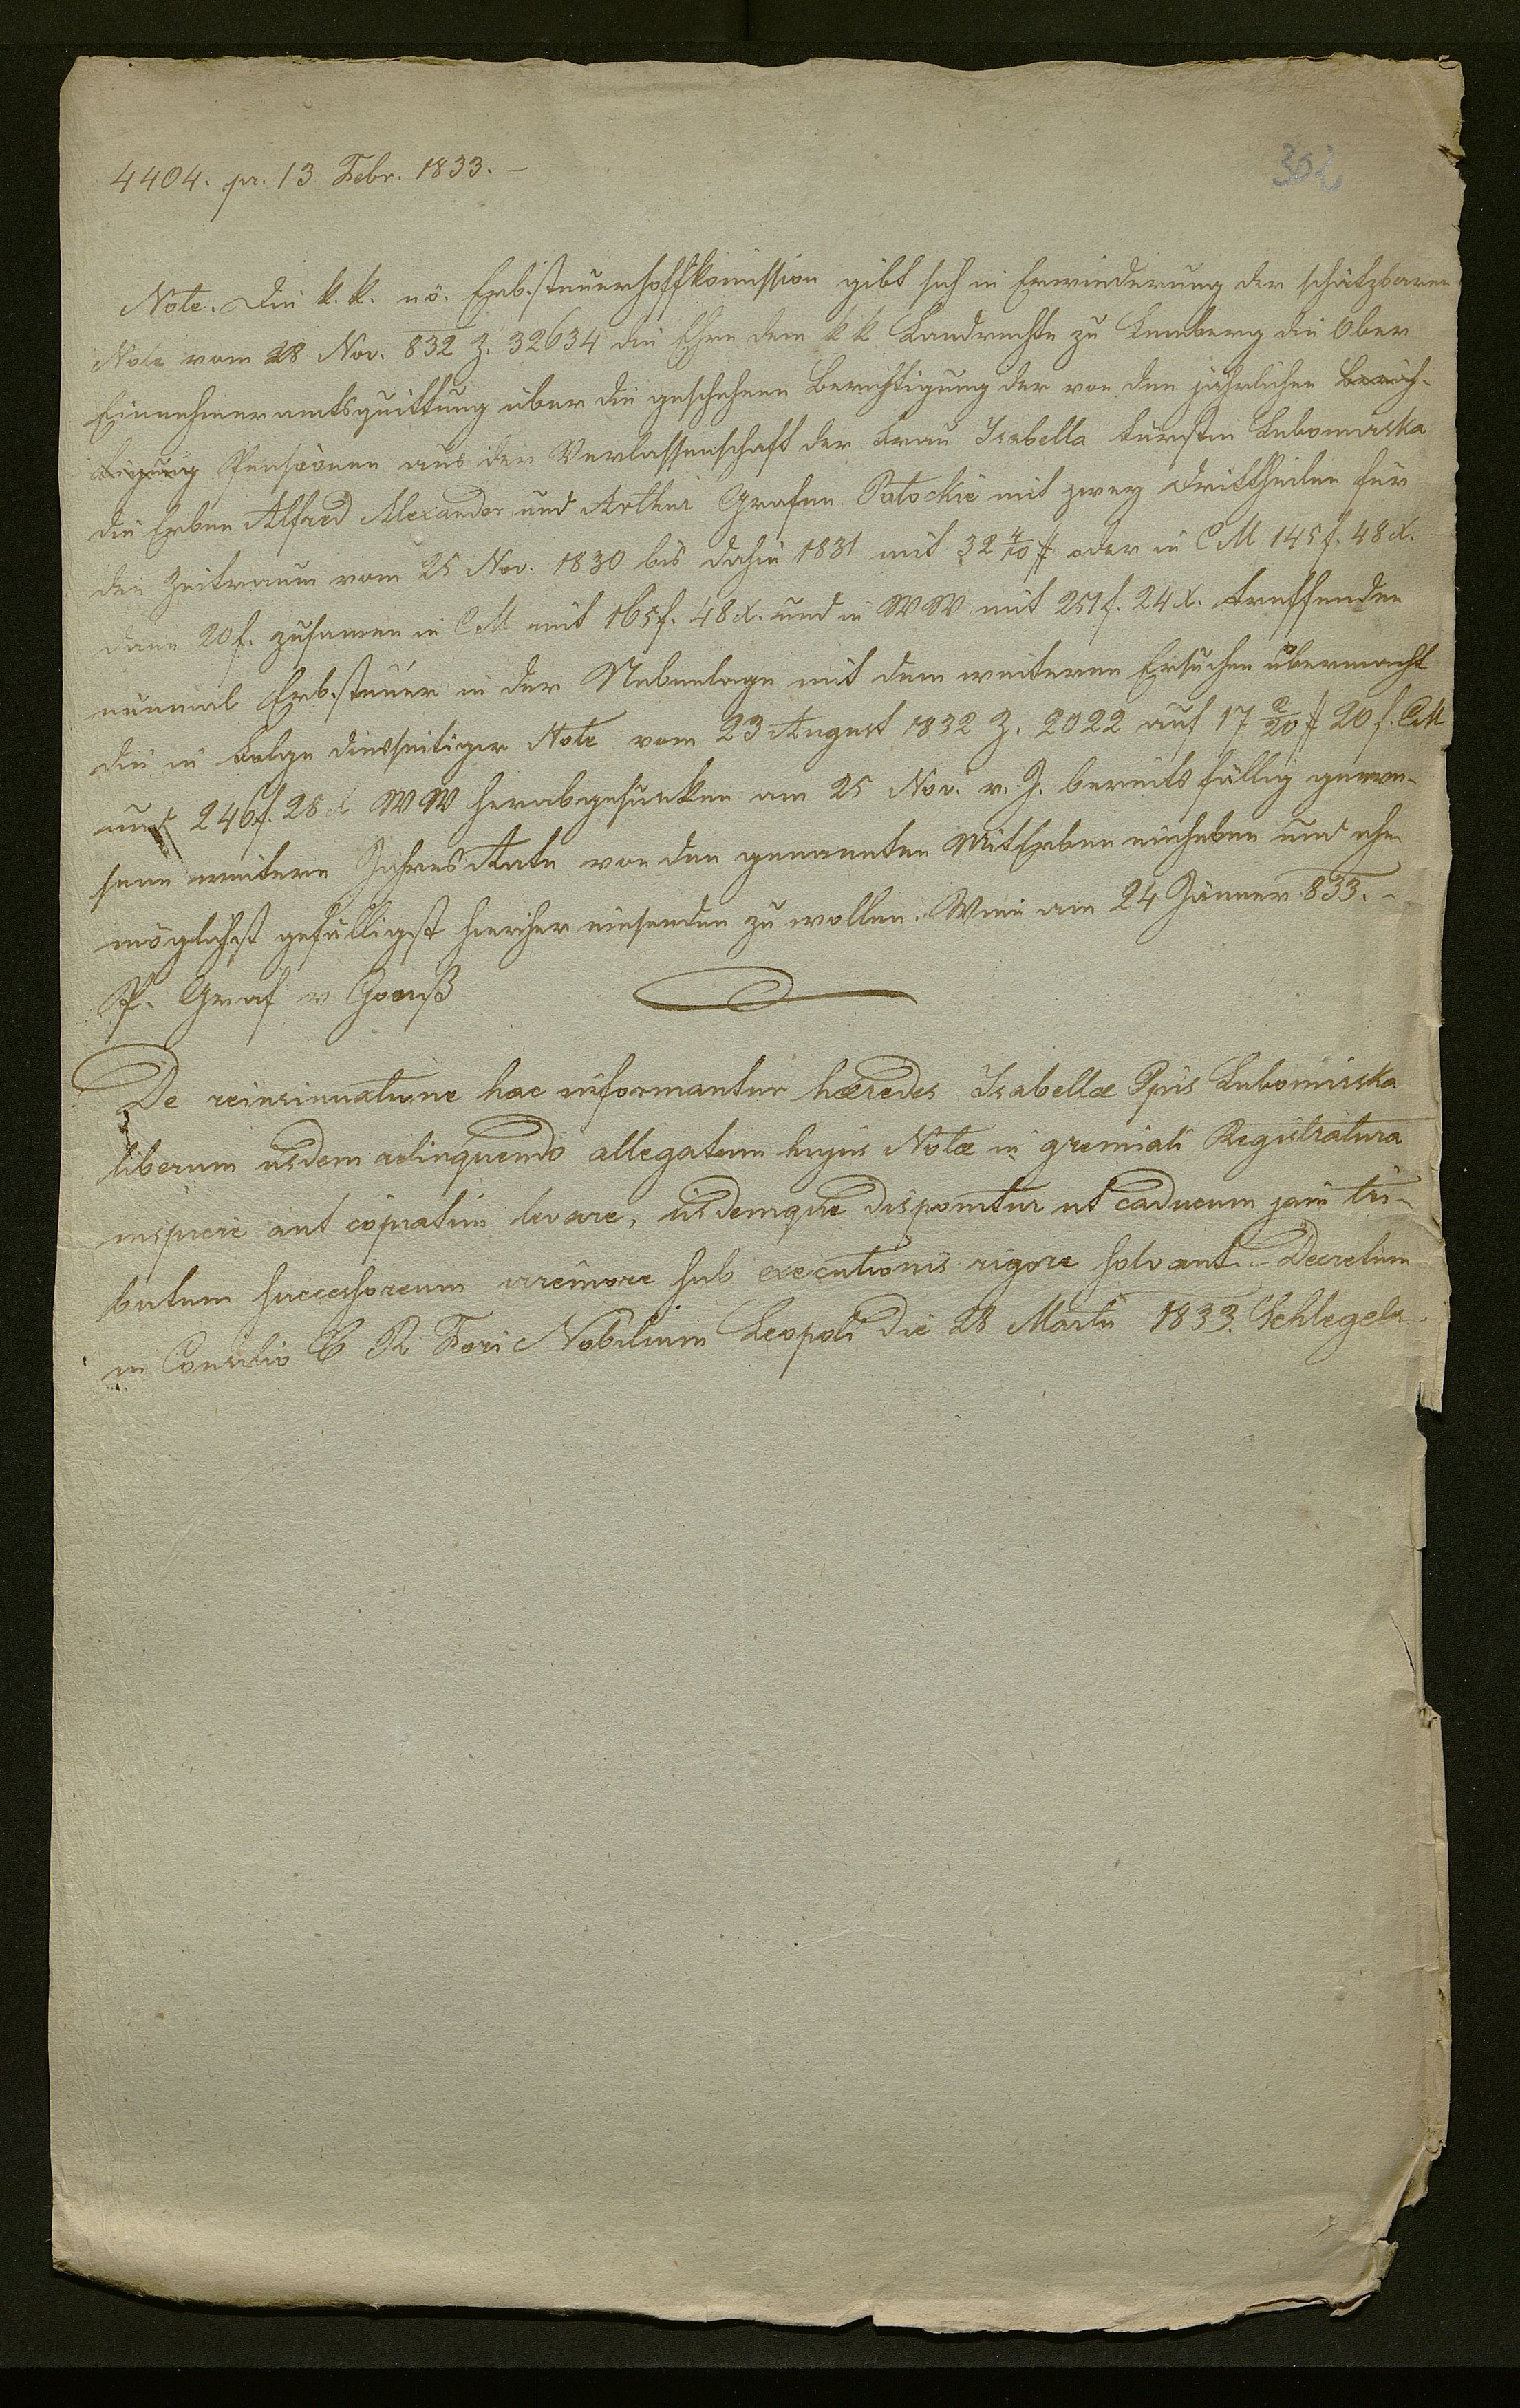 4404. pr. 13 Febr. 1833. –
302
Note. Die k. k. nö. Erbsteuerhofkomission gibt sich in Erwiederung der schätzbaren
Note vom 28 Nov. 832 Z. 32634 die Ehre dem k k Landrechte zu Lemberg die Ober
Einnehmeramtsquittung über die geschehene Berichtigung der von den jährlichen Berich-
tigung Pensionen aus der Verlassenschaft der Frau Isabella Fürstin Lubomirska
die Erben Alfred Alexander und Arthur Grafen Potockie mit zwey Drittheilen für
den Zeitraum vom 25 Nov. 1830 bis dahin 1831 mit 32 4/10 # oder in CM 145 f. 48 x.
dann 20 f. zusamen in CM mit 165 f. 48 x. und in WW mit 251 f. 24 x. treffenden
Erbsteuer in der Nebenlage mit dem weiteren Ersuchen übermacht
die in Folge diesseitiger Note vom 23 August 1832 Z. 2022 auf 17 2/20 # 20 f. CM
und 246 f. 28 x WW herabgesunken am 25 Nov. v. J. bereits fällig gewe-
sene weitere Jahres Rate von den genannten MitErben einheben und ehe
möglichst gefälligst hierher einsenden zu wollen. Wien am 24 Jänner 833. –
P. Graf v Goeuß
De reinsinuatione hac informantur hæredes Isabellæ Ppis Lubomirska
liberum iisdem relinquendo allegatum hujus Notæ in gremiali Registratura
inspicere aut copiatim levare, iisdemque disponitur ut caducum jam tri-
butum successoreum irremore sub executionis rigore solvant. – Decretum
in Consilio C R Fori Nobilium Leopoli die 28 Martii 1833. Schlegel